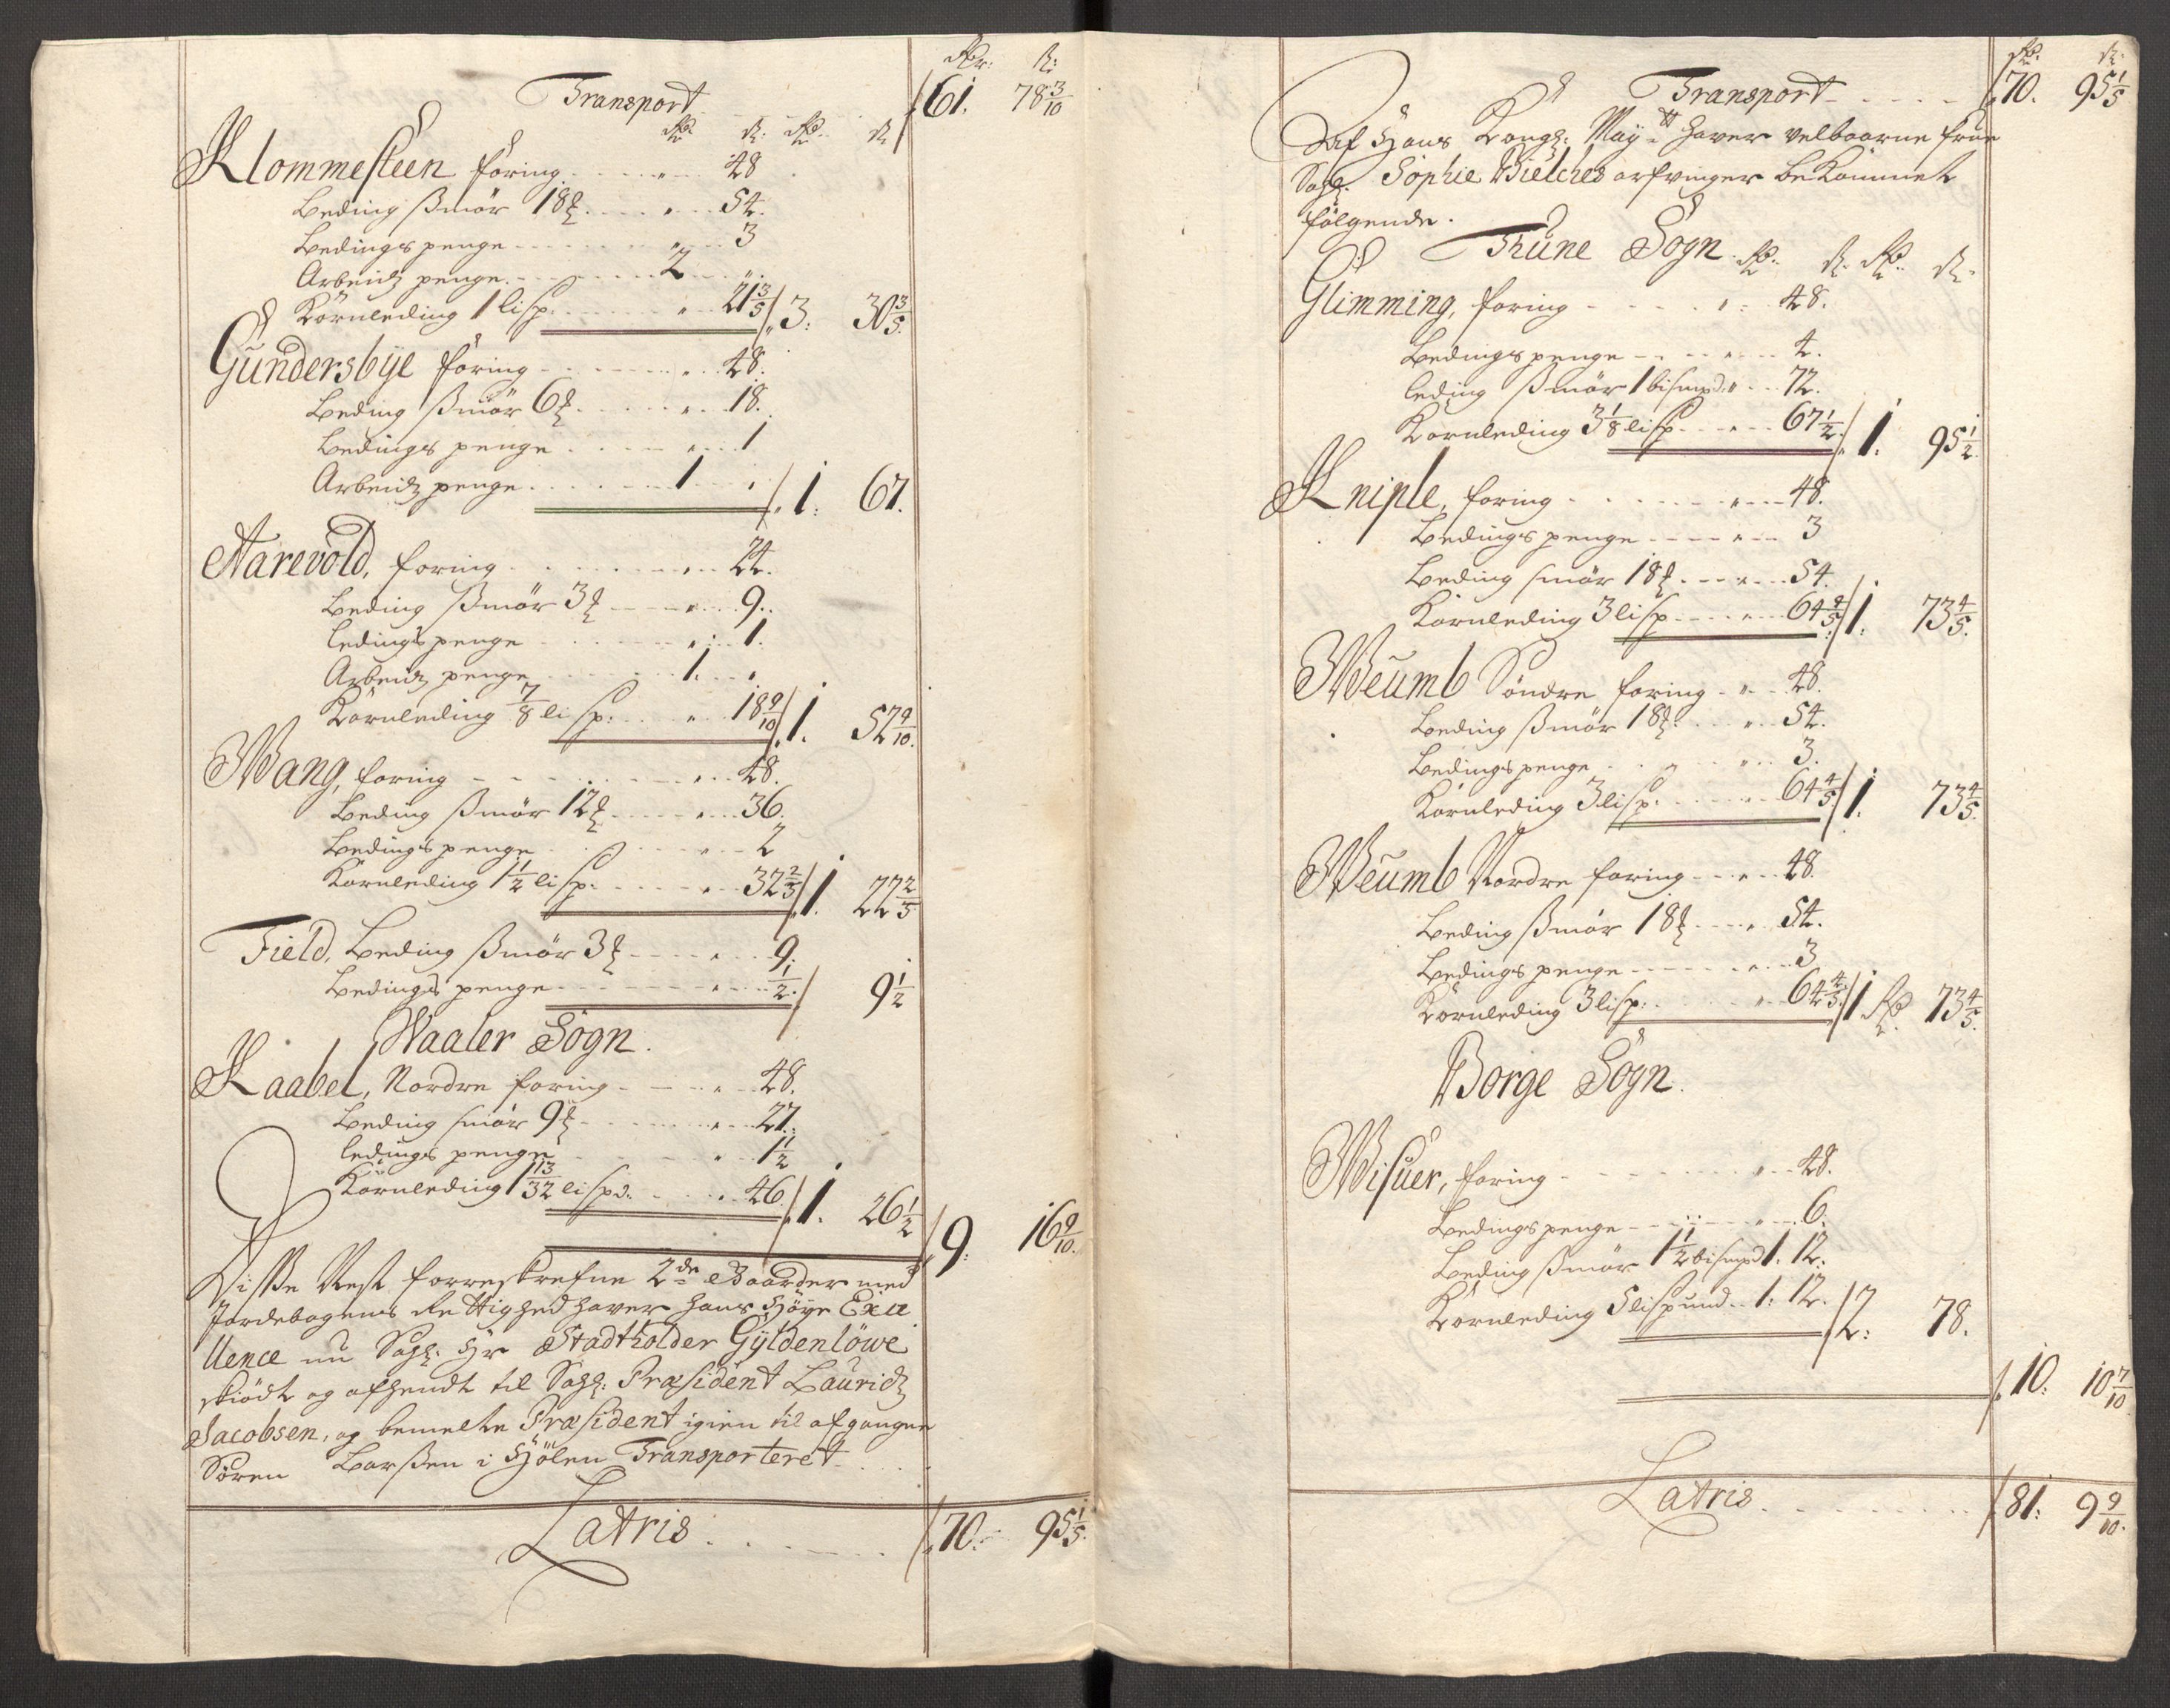 Rdr: ß:
Transport . . . 61. 78 3/10
Rdr ß. Rdr ß
Klommesteen foring . . . . „ . . 48
Leding Smör 18 ℔ . . . . „ . . 54.
Ledings penge . . . . „ . . 3
Arbeids penge . . . . 2 . . „
Kornleding 1 lisp. . . . „ . . 21 3/5 / 3: 30 3/5.
Gundersbÿe foring . . . . „ . . 48.
Leding Smör 6 ℔ . . . . „ . . 18.
Ledings penge . . . . „ . . 1
Arbeids penge . . . . 1 . . / 1: 67.
Aarevold, foring . . . . „ . . 24.
Leding Smör 3 ℔ . . . . „ . . 9.
ledings penge . . . . „ . . 1.
Arbeids penge . . . . 1. „
Kornleding 7/8 lisp. . . „ . . 18 9/10 / 1. 52 9/10.
Wang, foring . . . . „ . . 48.
Leding Smör 12 ℔ . . . . „ . . 36.
Ledings penge . . . . „ . . 2
Kornleding 1 1/2 lisp. . . . „ . . 32 2/5 / 1. 22 2/5
Field, Leding Smör 3 ℔ . . . . „ . . 9.
Ledings penge . . . . „ . . 1/2. / 9 1/2
Waaler Sogn.
Kaabel, Nordre foring . . . . „ . . 48.
Leding smör 9 ℔ . . . . „ . . 27.
ledings penge . . . . „ . . 1 1/2
Kornleding 1 13/32 lispd: . . „ . . 46 / 1. 26 1/2 / 9: 16 9/10.
Disse Nest forreskrefne 2de Gaarder med
Jordebogens Rettighed haver hans Höÿe Excel
lence nu Sahl: Hr Stadtholder Gÿldenlöwe
skiödt og afhendt til Sahl: Præsident Lauridz
Jacobsen, og bemelte Præsident igien til afgangne
Sören Larsen i Hölen Transporteret . . .
Latris . . . . 70. 95 1/5.
Rdr. ß.
Transport . . . . 70. 95 1/5
Af Hans Kongl: Maÿtt haver velbaarne frue
Sahl. Sophie Bielches arfvinger bekommet
fölgende.
Thune Sogn. Rdr. ß. Rdr. ß.
Glimming, foring . . . . „ . . 48.
Ledings penge . . . . „ . . 4.
leding Smör 1 bismpd: „ . . 72.
Kornleding 3 1/8 lisp . . „ . . 67 1/2. / 1. 95 1/2.
Kniple, foring . . . . „ . . 48.
Ledings penge . . . . „ . . 3
Leding smör 18 ℔ . . „ . . 54.
Kornleding 3 lisp . . . „ . . 64 4/5 / 1. 73 4/5.
Weumb Söndre foring . . „ . . 48.
Leding Smör 18 ℔ . . . „ . . 54.
Ledings penge . . . „ . . 3.
Kornleding 3 lisp. . . . „ . . 64 4/5 / 1. 73 4/5.
Weumb Nordre foring . . . „ . . 48.
Leding Smör 18 ℔ . . . „ . 54.
Ledings penge . . . . „ . . 3
Kornleding 3 lisp: . . . „ . . 64 4/5. / 1 Rdr. 73 4/5.
Borge Sogn.
Wisuer, foring . . . . „ . . 48.
Ledings penge . . . . „ . . 6.
Leding Smör 1 1/2 bismpd 1. 12.
Kornleding 5 lispund . . 1: 12. / 2: 78.
10: 10 7/10
Latris . . . . 81: 9 9/10.